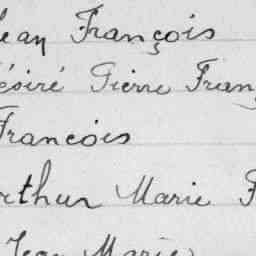 Jean François
Désiré Pierre Franç
François
Arthur Marie F
Jean Marie